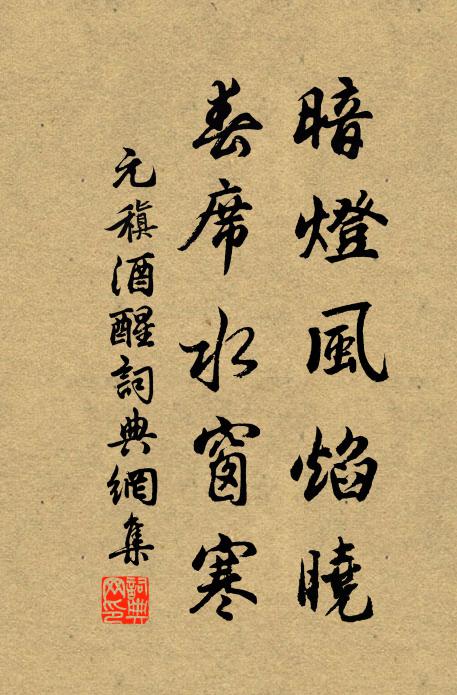 暗燈風焰曉
春席水窗寒
元稹酒醒詞典網集
詞典
网印